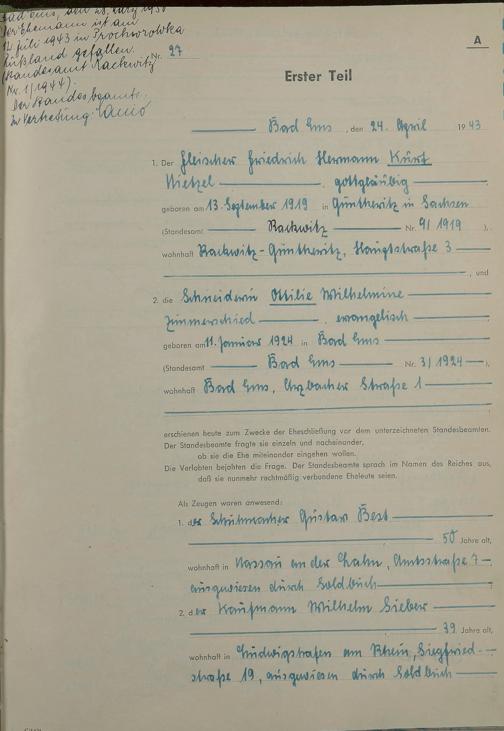 Bad Ems, den 28. März 19
Der Ehemann ist am
12. Juli 1943 in Prochorowka
Rußland gefallen.
(Standesamt Rackwitz
Nr. 1/1944).
Der Standesbeamte
In Vertretung:
Nr. 27
A
Erster Teil
Bad Ems, den 24. April 1943
1. Der Fleischer Friedrich Hermann Kurt
Nietzel, gottgläubig
geboren am 13. September 1919 in Güntheritz in Sachsen
(Standesamt Rackwitz Nr. 9/1919 ),
wohnhaft Rackwitz-Güntheritz, Hauptstraße 3
, und
2. die Schneiderin Ottilie Wilhelmine
Zimmerschied, evangelisch
geboren am 11. Januar 1924 in Bad Ems
(Standesamt Bad Ems Nr. 3/1924 ),
wohnhaft Bad Ems, Arzbacher Straße 1
erschienen heute zum Zwecke der Eheschließung vor dem unterzeichneten Standesbeamten.
Der Standesbeamte fragte sie einzeln und nacheinander,
ob sie die Ehe miteinander eingehen wollen.
Die Verlobten bejahten die Frage. Der Standesbeamte sprach im Namen des Reiches aus,
daß sie nunmehr rechtmäßig verbundene Eheleute seien.
Als Zeugen waren anwesend:
1. der Schuhmacher Gustav Best
50 Jahre alt,
wohnhaft in Nassau an der Lahn, Amtsstraße 7
ausgewiesen durch Soldbuch
2. der Kaufmann Wilhelm Sieber
39 Jahre alt,
wohnhaft in Ludwigshafen am Rhein, Siegfried-
straße 19, ausgewiesen durch Soldbuch